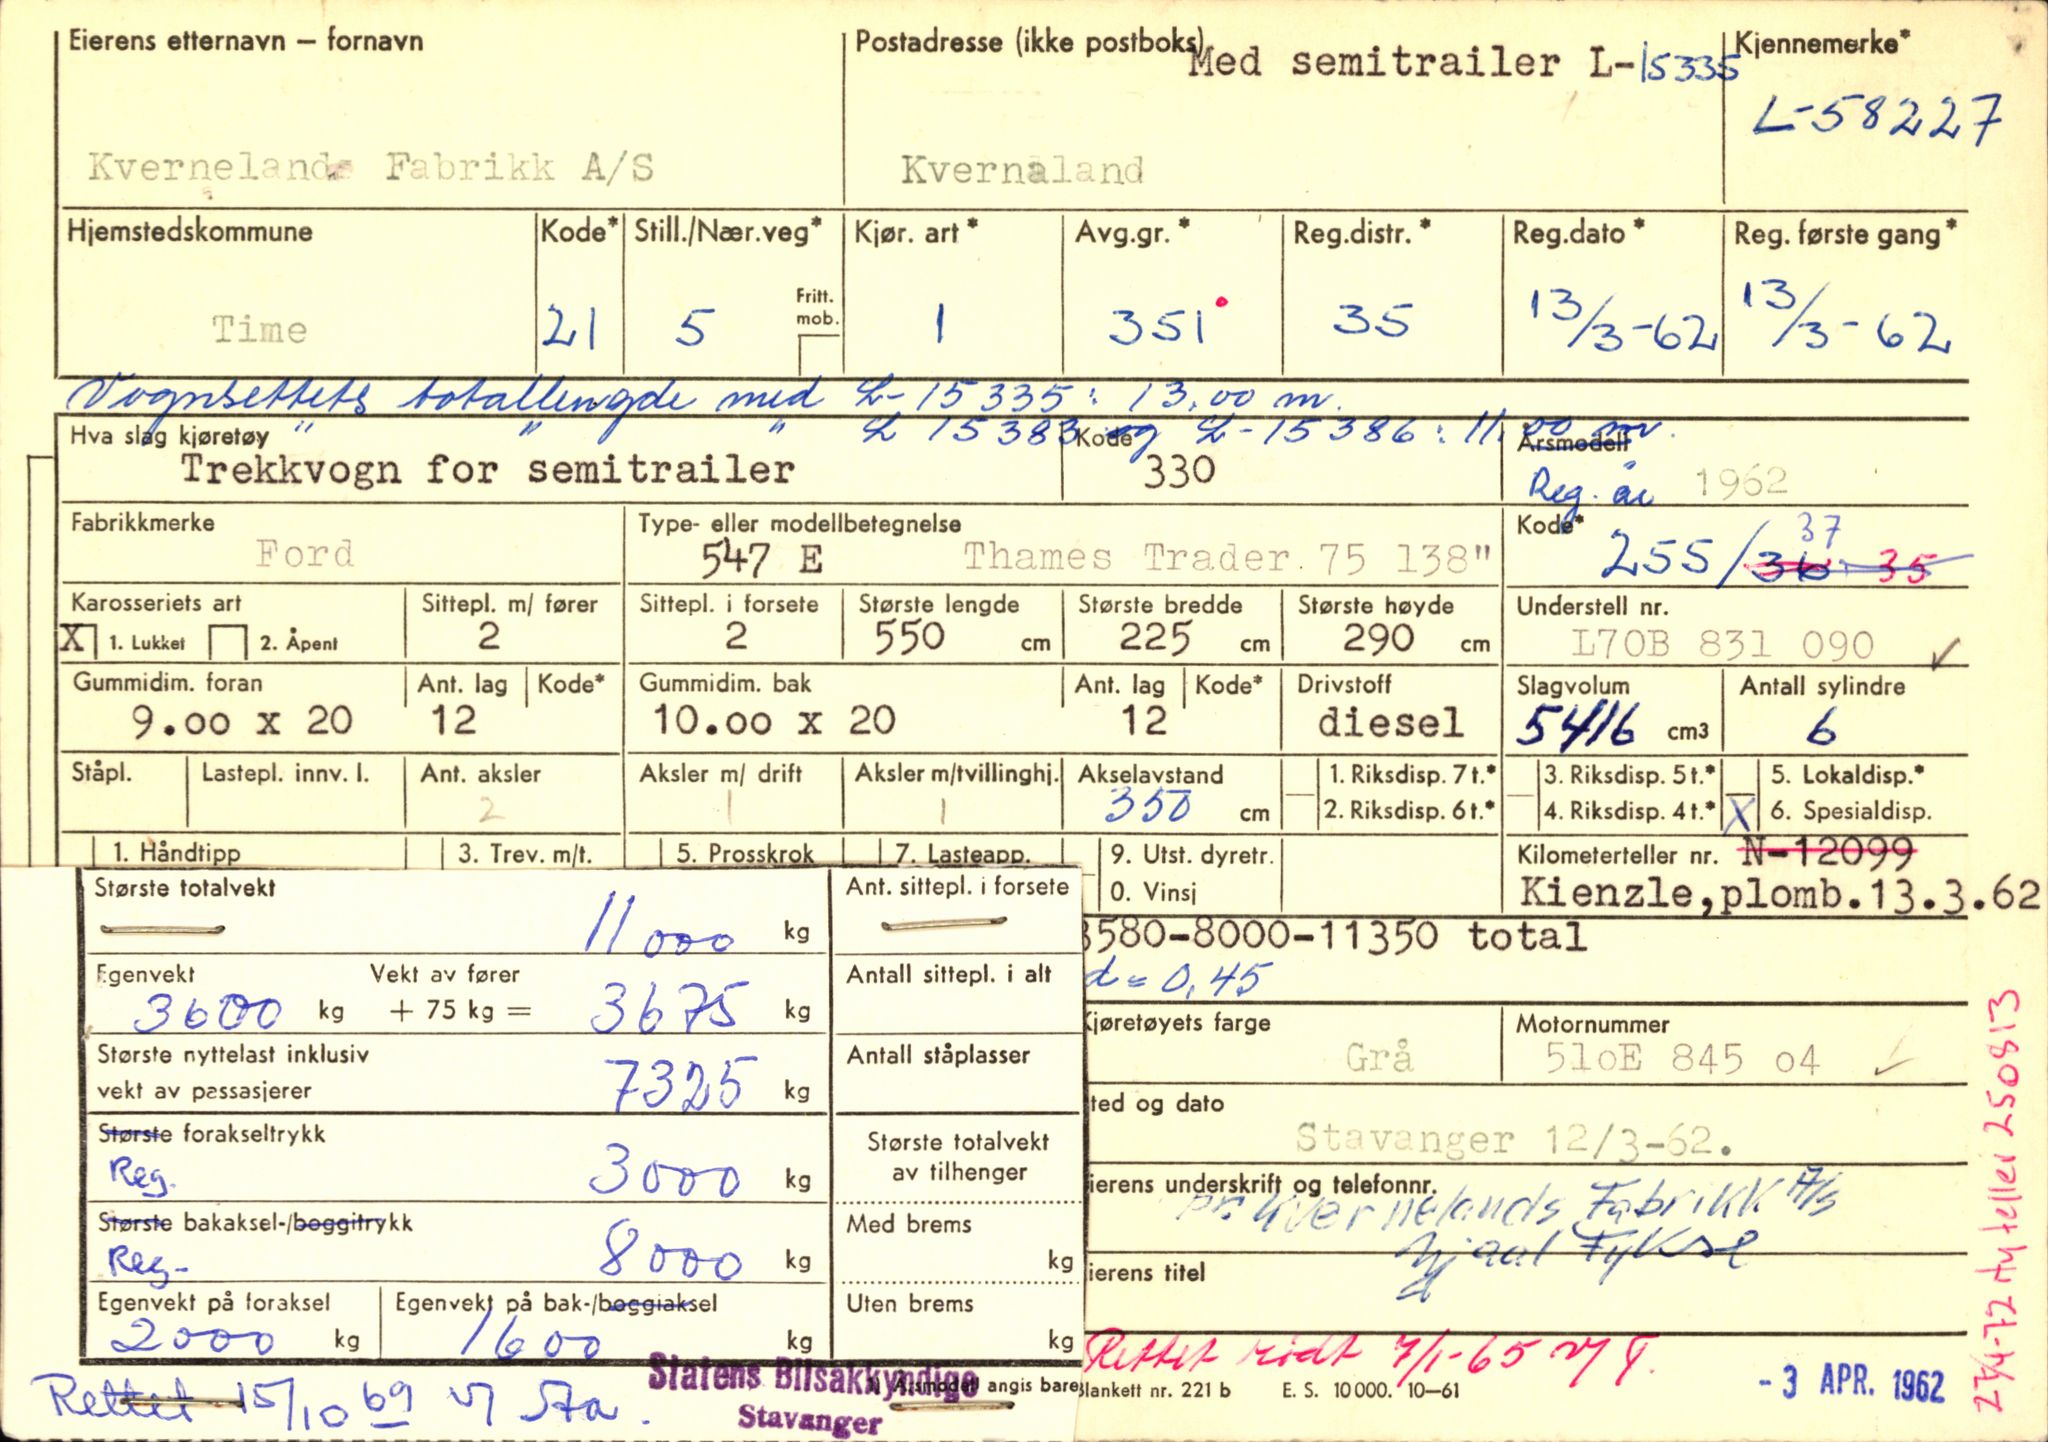 Eierens etternavn – fornavn
Postadresse (ikke postboks)
Med semitrailer L-15335
Kjennemerke*
L-58227
Kvernelands Fabrikk A/S
Kvernaland
Hjemstedskommune
Kode*
Still./Nær.veg*
Kjør. art*
Avg.gr.*
Reg.distr.*
Reg.dato*
Reg. første gang*
Fritt. mob.
Time
21
5
1
351
35
13/3-62
13/3-62
Vognsettets totallengde med L-15335: 13,00 m.
" " " L 15383 og L-15386: 11,00 m.
Hva slag kjøretøy
Kode
Årsmodell
Trekkvogn for semitrailer
330
Reg. år 1962
Fabrikkmerke
Type- eller modellbetegnelse
Kode*
Ford
547 E Thames Trader 75 138"
255/36 35 37
Karosseriets art
Sittepl. m/ fører
Sittepl. i forsete
Største lengde
Største bredde
Største høyde
Understell nr.
X 1. Lukket 2. Åpent
2
2
550 cm
225 cm
290 cm
L70B 831 090
Gummidim. foran
Ant. lag
Kode*
Gummidim. bak
Ant. lag
Kode*
Drivstoff
Slagvolum
Antall sylindre
9.00 x 20
12
10.00 x 20
12
diesel
5416 cm3
6
Ståpl.
Lastepl. innv. l.
Ant. aksler
Aksler m/ drift
Aksler m/tvillinghj.
Akselavstand
1. Riksdisp. 7 t.*
3. Riksdisp. 5 t.*
5. Lokaldisp.*
2
1
1
350 cm
2. Riksdisp. 6 t.*
4. Riksdisp. 4 t.*
X 6. Spesialdisp.
1. Håndtipp
3. Trev. m/t.
5. Prosskrok
7. Lasteapp.
9. Utst. dyretr.
0. Vinsj
Kilometerteller nr. N-12099
Kienzle, plomb.13.3.62
Største totalvekt
11000 kg
Ant. sittepl. i forsete
3580-8000-11350 total
Egenvekt
Vekt av fører
3600 kg + 75 kg = 3675 kg
Antall sittepl. i alt
d = 0,45
Største nyttelast inklusiv
vekt av passasjerer
7325 kg
Antall ståplasser
Kjøretøyets farge
Grå
Motornummer
510E 845 04
Største forakseltrykk
Reg. 3000 kg
Største totalvekt
av tilhenger
ted og dato
Stavanger 12/3-62.
Største bakaksel-/boggitrykk
Reg- 8000 kg
Med brems
kg
ierens underskrift og telefonnr.
pr. Kvernelands Fabrikk A/S
Fykse
ierens titel
Egenvekt på foraksel
2000 kg
Egenvekt på bak-/boggiaksel
1600 kg
Uten brems
kg
Rettet rødt 7/1-65
Rettet 15/10 69
Statens Bilsakkyndige
Stavanger
Årsmodell angis bare
Blankett nr. 221 b E. S. 10 000. 10–61
- 3 APR. 1962
27/4-72 Ny teller 250813